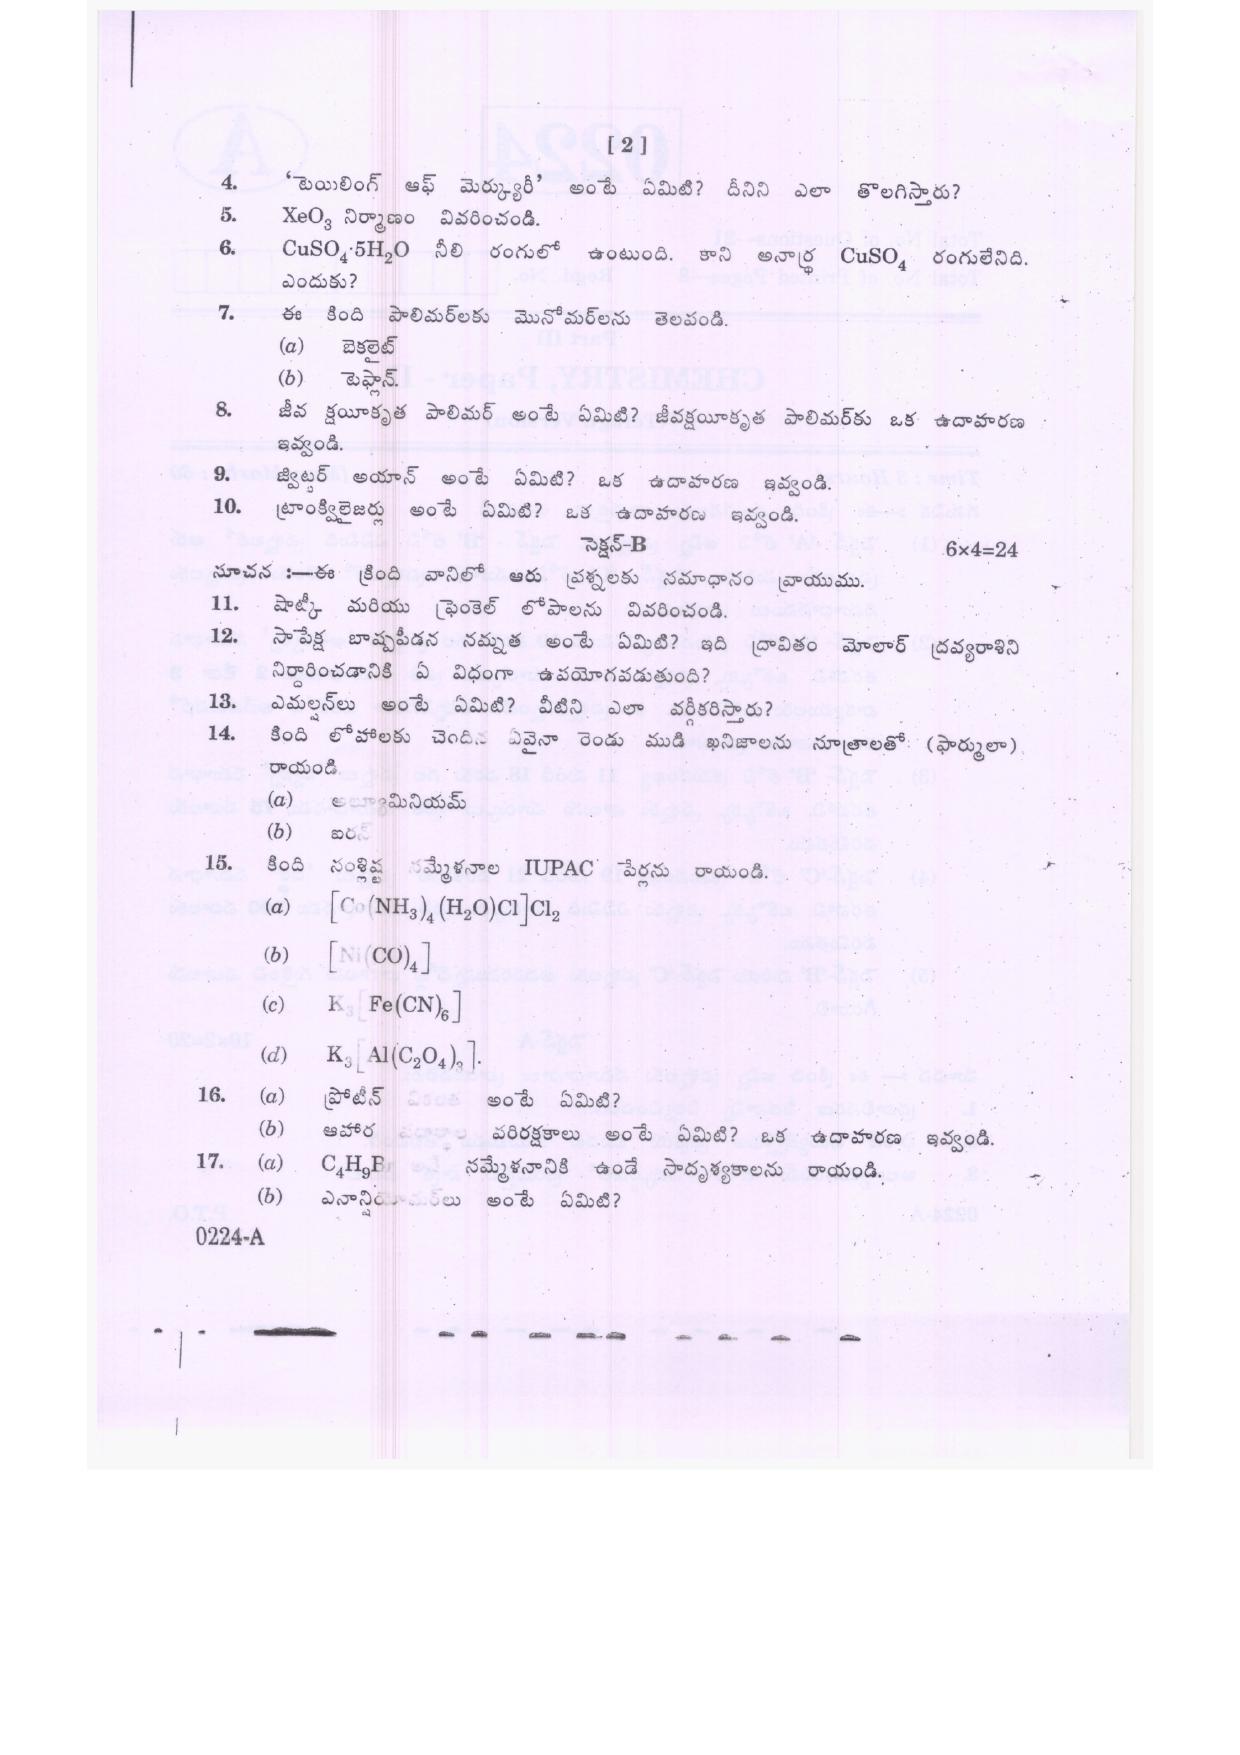 [ 2 ]
4. ‘టెయిలింగ్ ఆఫ్ మెర్క్యురీ’ అంటే ఏమిటి? దీనిని ఎలా తొలగిస్తారు?
5. XeO₃ నిర్మాణం వివరించండి.
6. CuSO₄·5H₂O నీలి రంగులో ఉంటుంది. కాని అనార్ద్ర CuSO₄ రంగులేనిది.
ఎందుకు?
7. ఈ కింది పాలిమర్‌లకు మొనోమర్‌లను తెలపండి.
(a) బెకలైట్
(b) టెఫ్లాన్.
8. జీవ క్షయీకృత పాలిమర్ అంటే ఏమిటి? జీవక్షయీకృత పాలిమర్‌కు ఒక ఉదాహరణ
ఇవ్వండి.
9. జ్విట్టర్ అయాన్ అంటే ఏమిటి? ఒక ఉదాహరణ ఇవ్వండి.
10. ట్రాంక్విలైజర్లు అంటే ఏమిటి? ఒక ఉదాహరణ ఇవ్వండి.
సెక్షన్-B 6×4=24
సూచన :—ఈ క్రింది వానిలో ఆరు ప్రశ్నలకు సమాధానం వ్రాయుము.
11. షాట్కీ మరియు ఫ్రెంకెల్ లోపాలను వివరించండి.
12. సాపేక్ష బాష్పపీడన నమ్నత అంటే ఏమిటి? ఇది ద్రావితం మోలార్ ద్రవ్యరాశిని
నిర్ధారించడానికి ఏ విధంగా ఉపయోగపడుతుంది?
13. ఎమల్షన్‌లు అంటే ఏమిటి? వీటిని ఎలా వర్గీకరిస్తారు?
14. కింది లోహాలకు చెందిన ఏవైనా రెండు ముడి ఖనిజాలను సూత్రాలతో (ఫార్ములా)
రాయండి
(a) అల్యూమినియమ్
(b) ఐరన్
15. కింది సంశ్లిష్ట సమ్మేళనాల IUPAC పేర్లను రాయండి.
(a) [Co(NH₃)₄(H₂O)Cl]Cl₂
(b) [Ni(CO)₄]
(c) K₃[Fe(CN)₆]
(d) K₃[Al(C₂O₄)₃].
16. (a) ప్రోటీన్ అంటే ఏమిటి?
(b) ఆహార పదార్థాల పరిరక్షకాలు అంటే ఏమిటి? ఒక ఉదాహరణ ఇవ్వండి.
17. (a) C₄H₉Br సమ్మేళనానికి ఉండే సాదృశ్యకాలను రాయండి.
(b) ఎనాన్షియోమర్‌లు అంటే ఏమిటి?
0224-A